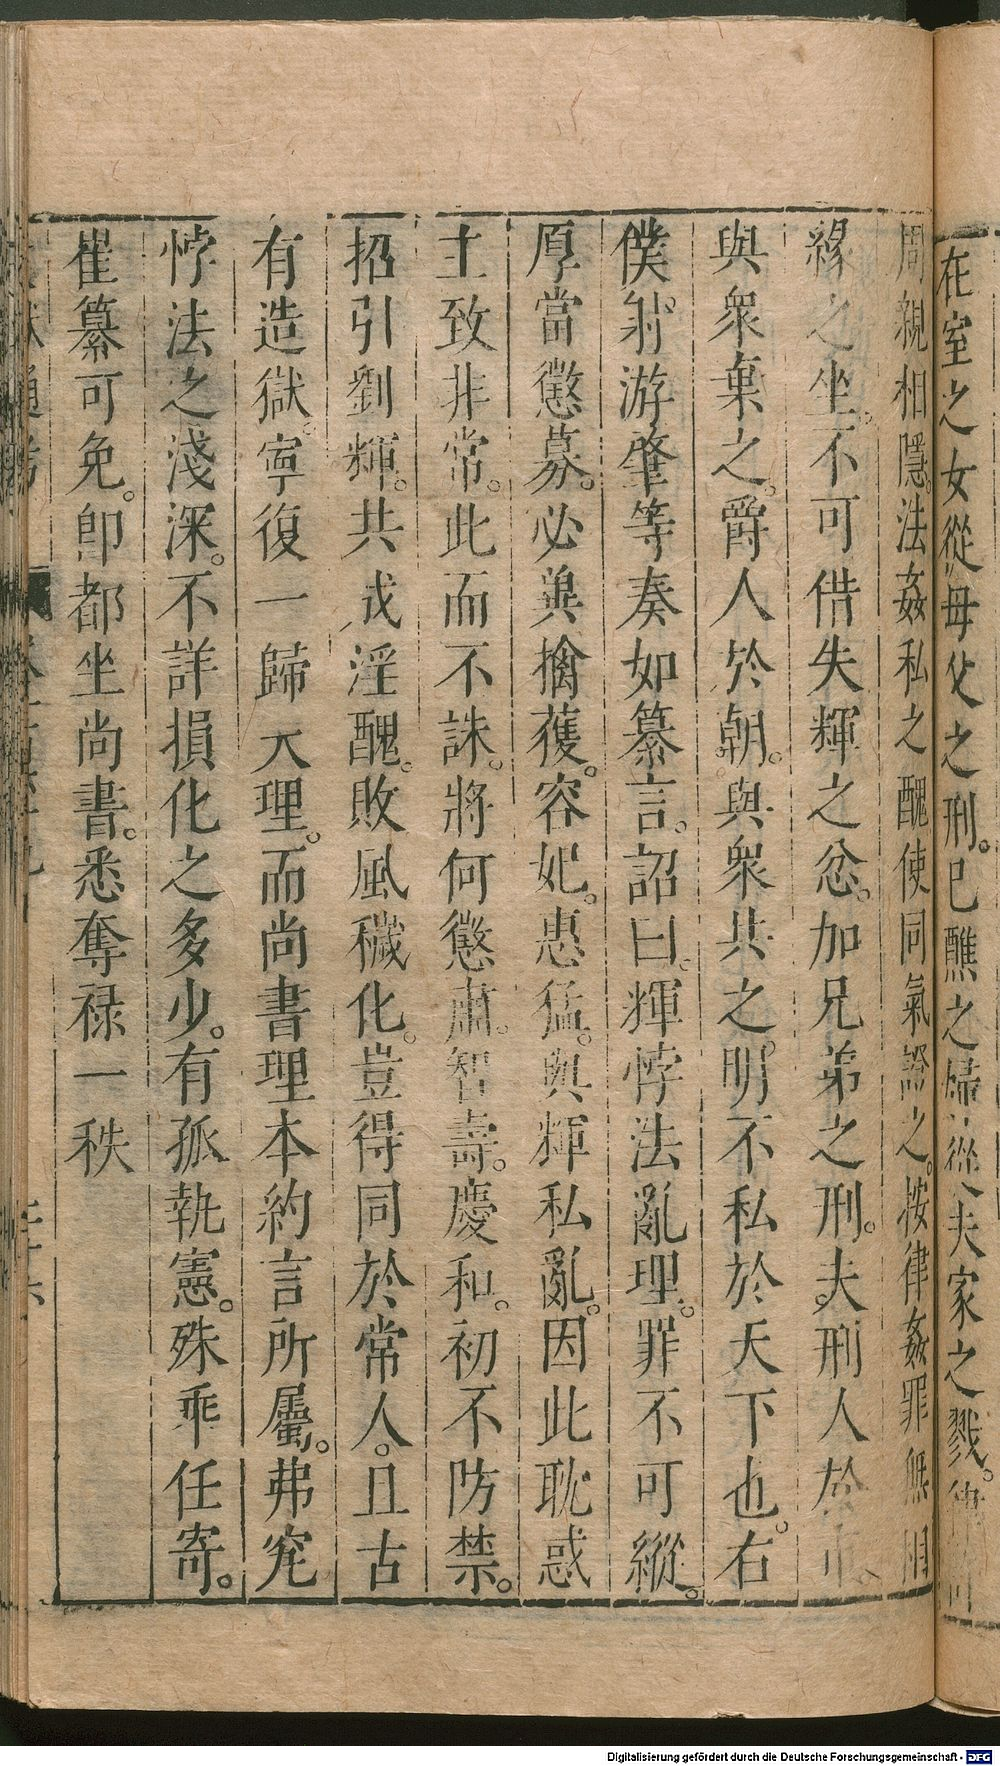 在室之女從母父之刑。已醮之婦從夫家之戮。
周親相隱。法姦私之醜使同氣證之。按律姦罪無相
緣之坐。不可借失輝之忿。加兄弟之刑。夫刑人於市、
與衆棄之。爵人於朝。與衆共之。明不私於天下也。右
僕射。游肇等奏如纂言。詔曰。輝悖法亂理。罪不可縱。
厚當懲募。必兾擒獲。容妃。惠猛。與輝私亂。因此耽惑
主致非常。此而不誅。將何懲肅。智壽。慶和。初不防禁。
招引劉輝。共成淫醜。敗風穢化。豈得同於常人。且古
有造獄。寧復一歸大理。而尚書理本約言所屬。弗究
悖法之淺深。不詳損化之多少。有孤執憲。殊乖任寄。
崔纂可免。卽都坐尚書。悉奪祿一秩
Digitalisierung gefördert durch die Deutsche Forschungsgemeinschaft - DFG